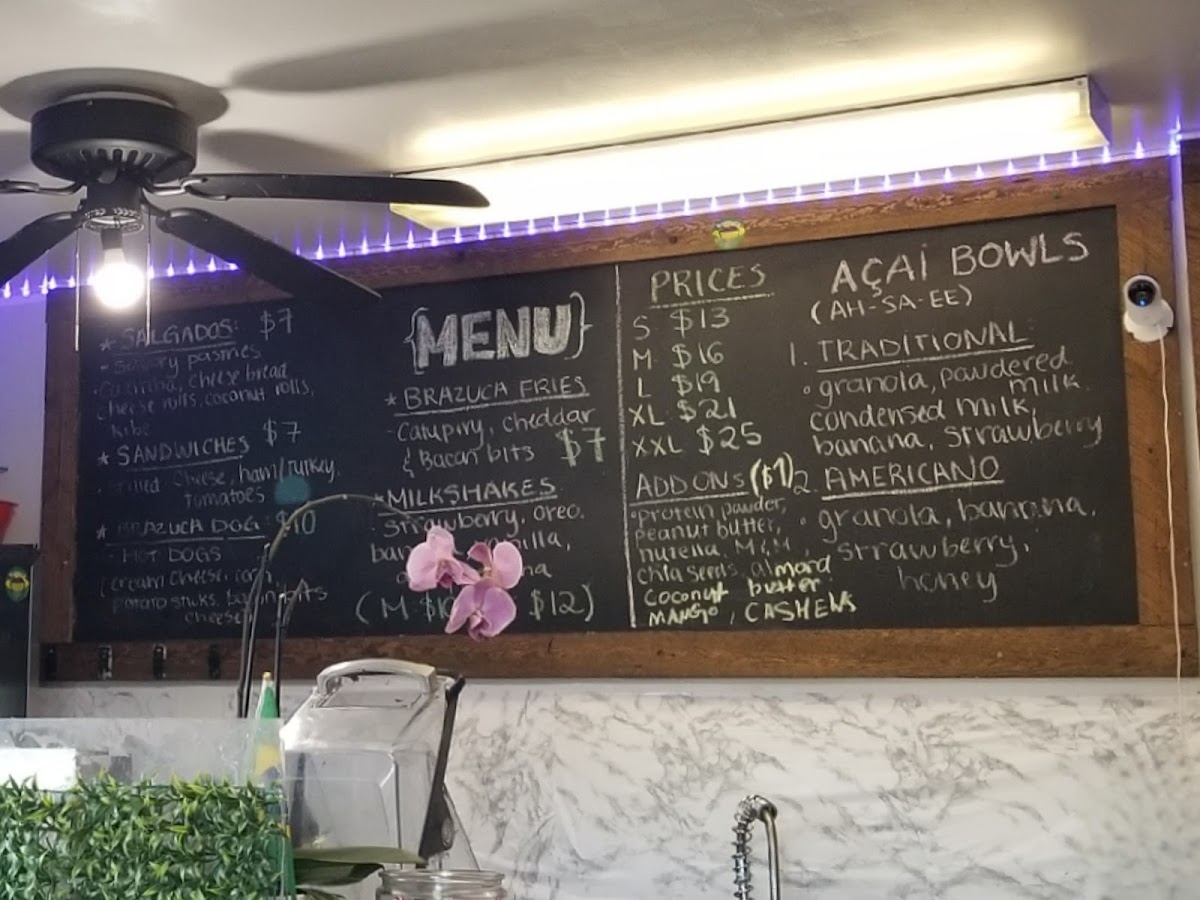 * SALGADOS: $7
- Savory pastries
Coxinha, cheese bread
cheese rolls, coconut rolls,
kibe
* SANDWICHES $7
Grilled cheese, ham/turkey,
tomatoes
* BRAZUCA DOG: $10
- HOT DOGS
(cream cheese, corn,
potato sticks, bacon bits
cheese
{MENU}
* BRAZUCA FRIES
- Catupiry, cheddar
& Bacon bits $7
* MILKSHAKES
- Strawberry, oreo.
(M $10 $12)
PRICES
S $13
M $16
L $19
XL $21
XXL $25
ADD ONS ($1)
• protein powder,
peanut butter,
nutella, M&M,
chia seeds, almond
coconut butter
MANGO, CASHEWS
AÇAÍ BOWLS
(AH-SA-EE)
1. TRADITIONAL
• granola, powdered
milk
condensed milk,
banana, strawberry
2. AMERICANO
• granola, banana,
strawberry,
honey